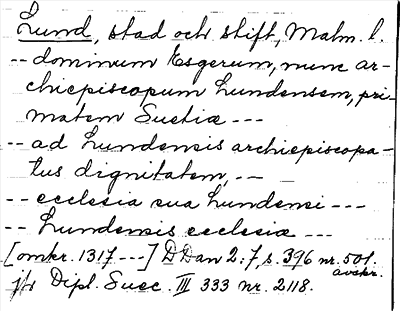 Lund, stad och stift, Malm. l.
-- dominum Esgerum, nunc ar-
chiepiscopum Lundensem, pri-
matem Suetiæ ---
-- ad Lundensis archiepiscopa-
tus dignitatem, --
-- ecclesia sua Lundensi ---
-- Lundensis ecclesiæ ---
[omkr. 1317 ---] DDan 2:7, s. 396 nr. 501.
avskr.
jfr Dipl. Suec. III 333 nr. 2118.